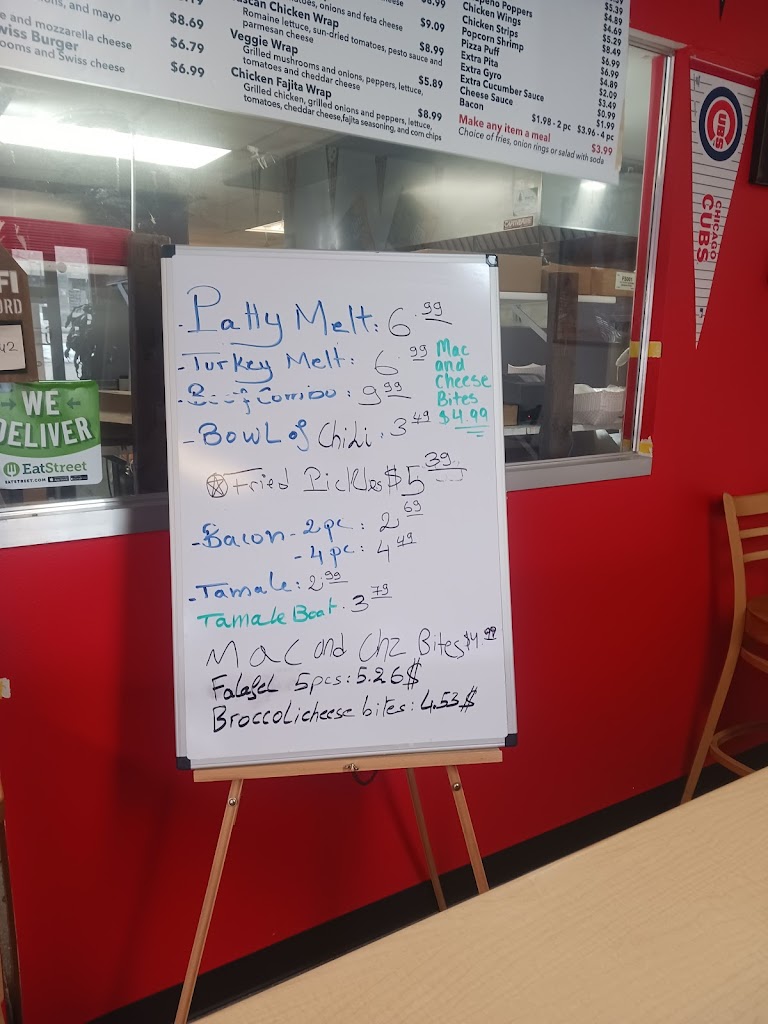 ons, and mayo
$8.69
e and mozzarella cheese
$6.79
wiss Burger
ooms and Swiss cheese
$6.99
atoes, onions and feta cheese
$8.99
scan Chicken Wrap
$9.09
Romaine lettuce, sun-dried tomatoes, pesto sauce and
parmesan cheese
Veggie Wrap
$8.99
Grilled mushrooms and onions, peppers, lettuce,
tomatoes and cheddar cheese
$5.89
Chicken Fajita Wrap
Grilled chicken, grilled onions and peppers, lettuce,
$8.99
tomatoes, cheddar cheese, fajita seasoning, and corn chips
peño Poppers
$5.39
Chicken Wings
$4.89
Chicken Strips
$4.69
Popcorn Shrimp
$5.29
Pizza Puff
$8.49
Extra Pita
$6.99
Extra Gyro
$6.99
Extra Cucumber Sauce
$4.89
Cheese Sauce
$2.09
Bacon
$3.49
$0.99
$1.99
$1.98 - 2 pc $3.96 - 4 pc
Make any item a meal
$3.99
Choice of fries, onion rings or salad with soda
CUBS
CHICAGO
CUBS
FI
ORD
42
WE
DELIVER
EatStreet
EATSTREET.COM
- Patty Melt: 6.99
- Turkey Melt: 6.99
- Beef Combo: 9.99
- Bowl of Chili: 3.49
Mac
and
Cheese
Bites
$4.99
Fried Pickles $5.39
- Bacon - 2pc: 2.69
- 4pc: 4.49
- Tamale: 2.99
Tamale Boat. 3.79
Mac and Chz Bites $4.99
Falafel 5pcs: 5.26$
Broccolicheese bites: 4.53$